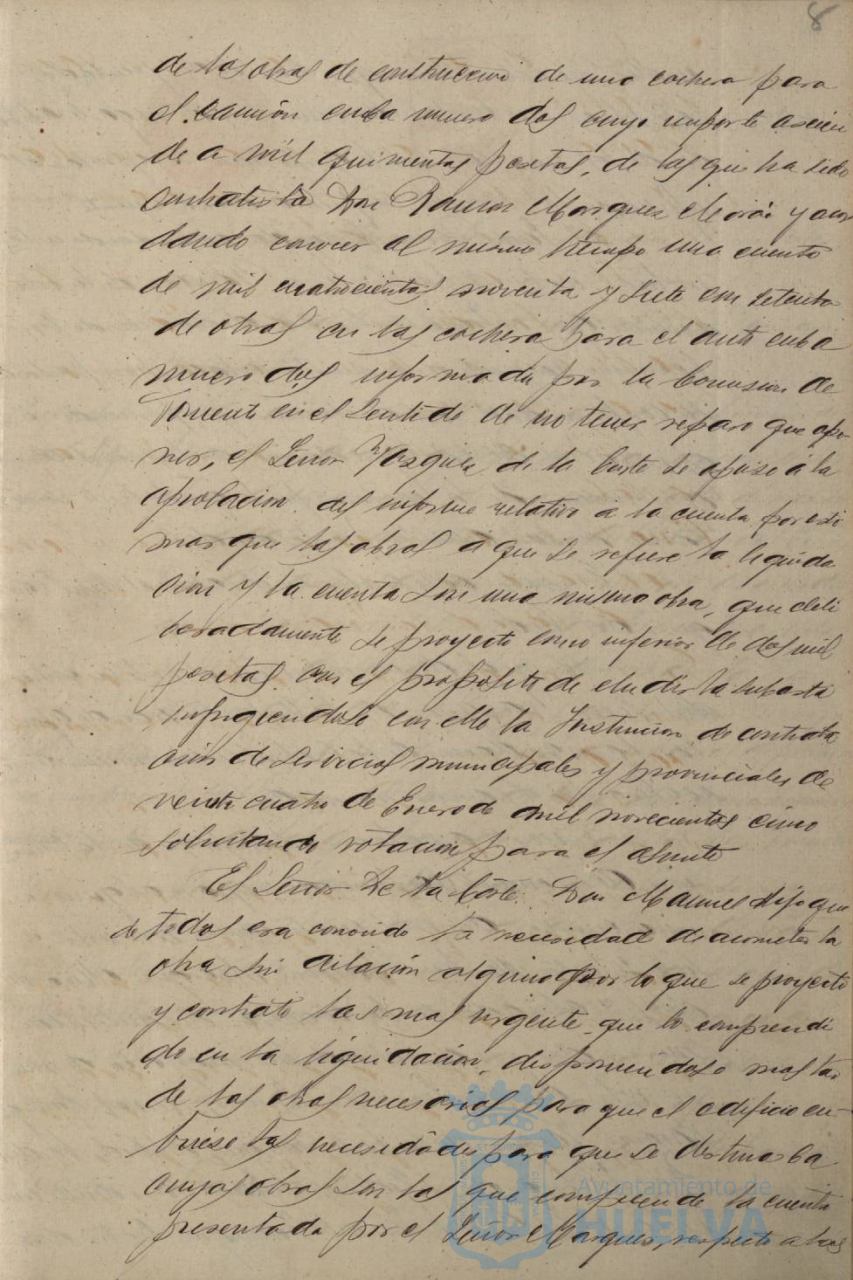 8
de las obras de construccion de una cochera para
el camión cuba numero dos cuyo importe ascien
de a mil quinientas pesetas, de las que ha sido
contratista Don Ramon Marquez Morán y
dando conocer al mismo tiempo una cuenta
de mil cuatrocientas noventa y siete con setenta
de obras en las cochera para el auto cuba
numero dos informada por la Comision de
Fomento en el sentido de no tener reparo que opo
ner, el Señor Vazquez de la Corte se opuso á la
aprobacion del informe relativo a la cuenta por esti
mar que las obras a que se refiere la liquida
cion y la cuenta son una misma obra, que deli
beradamente se proyecto como inferior de dos mil
pesetas con el proposito de eludir la subasta
infrigiendose con ello la Instruccion de contrata
cion de servicios municipales y provinciales de
veinte cuatro de Enero de mil novecientos cinco
solicitando votacion para el asunto
El Señor De la Corte Don Manuel dijo que
de todos era conocido la necesidad de acometer la
obra sin dilación alguna por lo que se proyecto
y contrato las mas urgente que lo comprendi
do en la liquidación, disponiendose mas tar
de las obras necesarias para que el edificio cu-
briese las necesidades para que se destinaba
cuyas obras son las que comprende la cuenta
presentada por el Señor Marquez, respecto a las
Ayuntamiento de
HUELVA